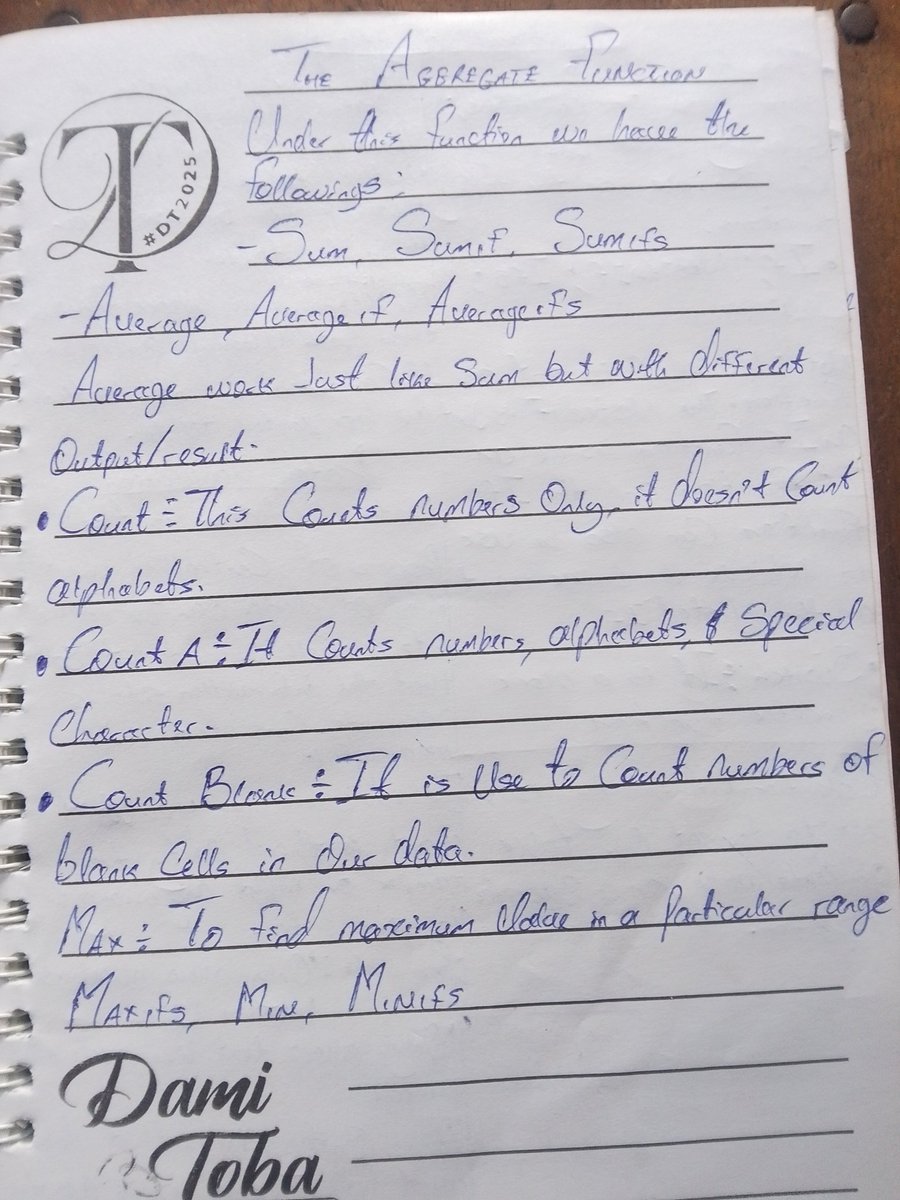 THE AGGREGATE FUNCTION
Under this function we have the
followings:
- Sum, Sumif, Sumifs
#DT2025
- Average, Averageif, Averageifs
Average work Just like Sum but with different
Output/result.
• Count :- This Counts numbers Only, it doesn't Count
alphabets.
• Count A :- It Counts numbers, alphabets, & Special
Character.
• Count Blank :- It is Use to Count numbers of
blank Cells in Our data.
MAX :- To find maximum Value in a Particular range
MAXifs, MIN, MINifs
Dami
Toba